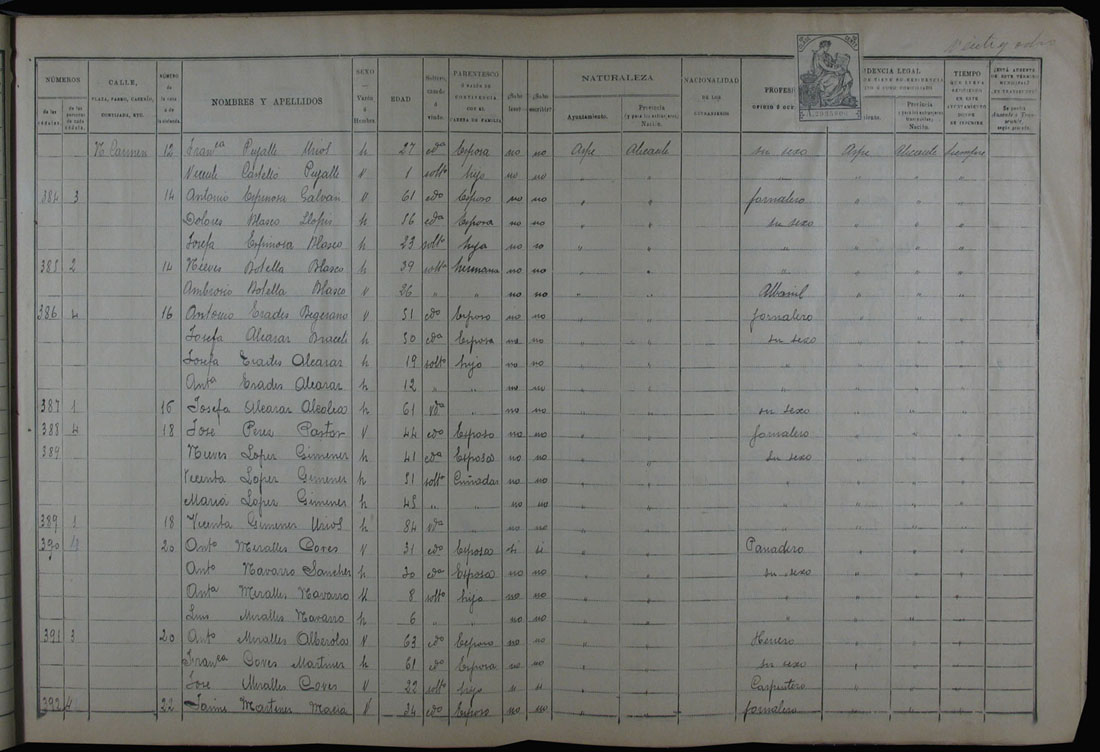 veintiyocho
NÚMEROS
de las cédulas.
de las personas de cada cédula.
CALLE,
PLAZA, PASEO, CASERÍO,
CORTIJADA, ETC.
NÚMERO
de la casa ó de la vivienda.
NOMBRES Y APELLIDOS
SEXO
Varón ó Hembra.
EDAD
Soltero, casado ó viudo.
PARENTESCO
Ó RAZÓN DE CONVIVENCIA CON EL CABEZA DE FAMILIA
¿Sabe leer?
¿Sabe escribir?
NATURALEZA
Ayuntamiento.
Provincia
(y para los extranjeros)
Nación.
NACIONALIDAD
DE LOS
EXTRANJEROS
PROFESI
OFICIO Ó
IDENCIA LEGAL
Provincia
Nación.
TIEMPO
¿ESTÁ AUSENTE
N. Carmen 12 Franca Pujalte Uriol h 27 cda Esposa no no Aspe Alicante su sexo Aspe Alicante siempre
Vicente Castelló Pujalte V 1 soltº hijo no no " " " " " "
384 3 14 Antonio Espinosa Galvañ V 61 cdo Esposo no no " " jornalero " " "
Dolores Blasco Llopis h 56 cda Esposa no no " " su sexo " " "
Josefa Espinosa Blasco h 23 solta hija no no " " " " " "
385 2 14 Nieves Botella Blasco h 39 solta hermana no no " " " " " "
Ambrosio Botella Blasco V 26 " " no no " " Albañil " " "
386 4 16 Antonio Erades Begerano V 51 cdo Esposo no no " " Jornalero " " "
Josefa Alcaraz h 50 cda Esposa no no " " su sexo " " "
Josefa Erades Alcaraz h 19 solto hija no no " " " " "
Anta Erades Alcaraz h 12 " " no no " " " " "
387 1 16 Josefa Alcaraz Alcolea h 61 vda " no no " " su sexo " " "
388 4 18 José Perez Pastor V 44 cdo Esposo no no " " Jornalero " " "
389 Nieves Lopez Gimenez h 41 cda Esposa no no " " su sexo " " "
Vicenta Lopez Gimenez h 51 solta Cuñadas no no " " " " "
Maria Lopez Gimenez h 45 " " no no " " " " "
389 1 18 Vicenta Gimenez Uriol h 84 vda no no " " " " "
390 20 Anto Miralles Cores V 31 cdo Esposo si si " " Panadero " " "
Anta Navarro Sanchez h 30 cda Esposa no no " " su sexo " " "
Anta Miralles Navarro h 8 solto hija no no " " " " "
Luis Miralles Navarro h 6 " " no no " " " " "
391 3 20 Anto Miralles Alberola V 63 cdo Esposo no no " " Herrero " " "
Franca Cores Martinez h 61 cda Esposa no no " " su sexo " " "
José Miralles Cores V 22 solto hijo " " " " Carpintero " " "
392 4 22 Jaime Martinez Maciá V 34 cdo Esposo no no " " jornalero " " "